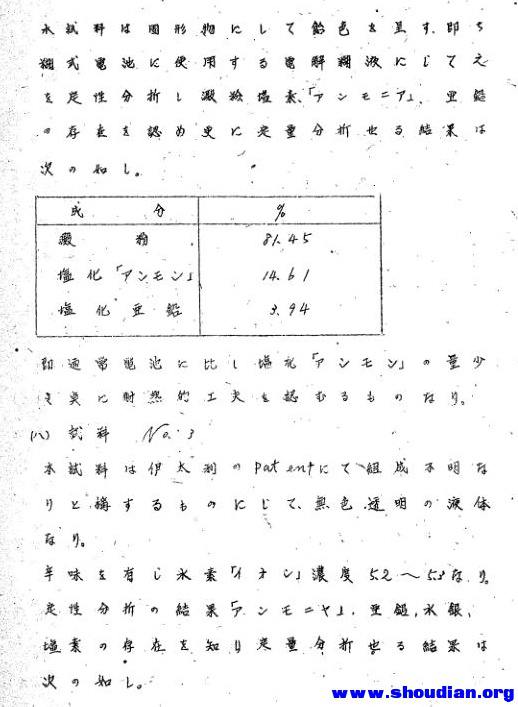 本試料は固形物にして飴色を呈す、即ち
糊式電池に使用する電解糊液にして之
を定性分折し澱粉塩素、「アンモニア」、亜鉛
の存在を認め更に定量分折せる結果は
次の如し。
成分 %
澱粉 81.45
塩化「アンモン」 14.61
塩化亜鉛 3.94
即 電池に比し塩化「アンモン」の量少
に耐熱的工夫を認むるものなり。
(ハ) 試料 No. 3
本試料は伊太利のPatentにて組成不明な
りと稱するものにして、無色透明の液体
なり。
辛味を有し水素「イオン」濃度 5.2〜5.3なり。
定性分折の結果「アンモニヤ」、亜鉛、水銀、
塩素の存在を知り定量分折せる結果は
次の如し。
www.shoudian.org